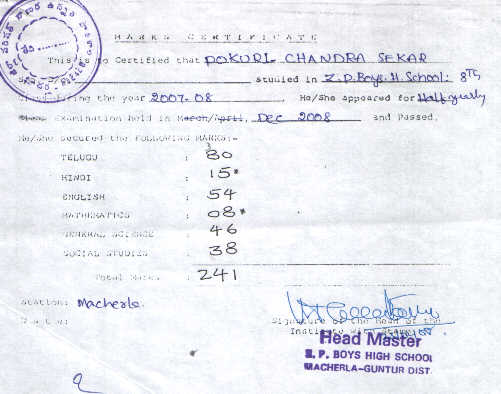 MARKS CERTIFICATE
This is to Certified that POKURI CHANDRA SEKAR
studied in Z.P.Boys.H.School. 8TH
during the year 2007-08, He/She appeared for Half yearly
Examination held in March/April, Dec 2008 and Passed.
He/She secured the FOLLOWING MARKS:-
TELUGU : 80
HINDI : 15*
ENGLISH : 54
MATHEMATICS : 08*
GENERAL SCIENCE : 46
SOCIAL STUDIES : 38
Total Marks : 241
Station: Macherla.
Date:
Signature of the Head of the
Institute with Stamp
Head Master
Z. P. BOYS HIGH SCHOOL
MACHERLA-GUNTUR DIST.